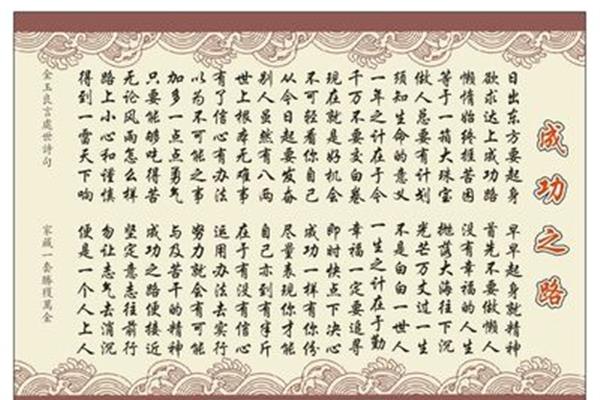 成功之路
日出东方要起身 早早起身就精神
欲求达上成功路 首先不要做懒人
懒惰始终捱苦困 没有幸福的人生
等于一箱大珠宝 抛落大海往下沉
做人总要有计划 光芒万丈过一生
须知生命的意义 不是白白一世人
一年之计在于今 一生之计在于勤
千万不要交白卷 幸福一定要追寻
现在就是好机会 即时快点下决心
不可轻看你自己 成功一样有你份
从今日起要发奋 尽量表现你才能
别人虽然有八两 自己亦到有半斤
世上根本无难事 在于有没有信心
有了信心有办法 运用办法去实行
以为不可能之事 努力就会有可能
加多一点点勇气 与及苦干的精神
只要能够吃得苦 成功之路便接近
无论风雨怎么样 坚定意志往前行
路上小心和谨慎 勿让志气去消沉
得到一雷天下响 便是一个人上人
金玉良言處世詩句 家藏一套勝穫萬金